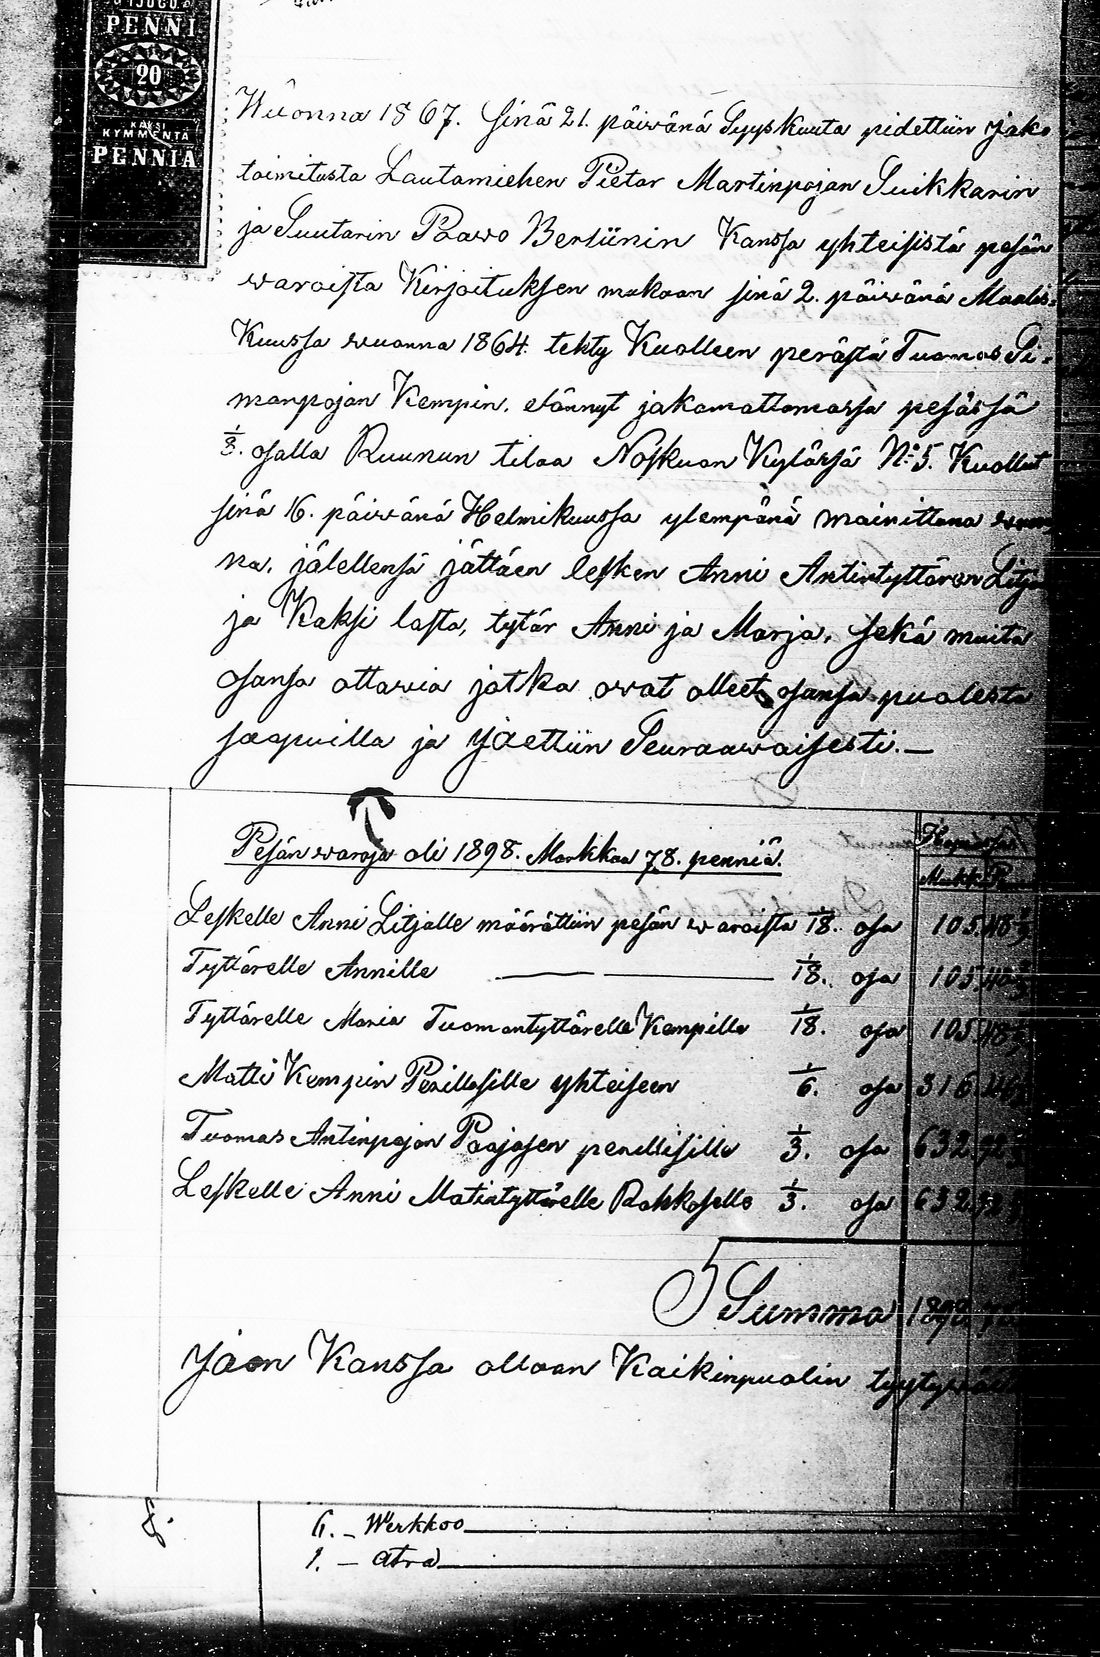 PENNI
20
KAKSI
KYMMENTÄ
PENNIÄ
Wuonna 1867. sinä 21. päiwänä Syyskuuta pidettiin Jako
toimitusta Lautamiehen Pietar Martinpojan Suikkarin
ja Suutarin Paawo Berliinin Kanssa yhteisistä pesän
waroista Kirjoituksen mukaan sinä 2. päiwänä Maalis-
Kuussa wuonna 1864. tehty Kuolleen perästä Tuomas Si-
manpojan Kempin. elännyt jakamattomassa pesässä
1/8. osalla Ruunun tilaa Noskuan Kylässä No 5. Kuollut
sinä 16. päiwänä Helmikuussa ylempänä mainittuna wuon
na. jälellensä jättäen lesken Anni Antintyttären
ja Kaksi lasta, tytär Anni ja Marja, sekä muita
osansa ottawia jotka owat olleet osansa puolesta
saapuilla ja Jaettiin Seuraawaisesti.—
Pesän waroja oli 1898. Markkaa 78. penniä.
Leskelle Anni Litjalle määrättiin pesän waroista 1/18. osa 105
Tyttärelle Annille — 1/18. osa 105
Tyttärelle Maria Tuomantyttärelle Kempille 1/18. osa 105
Matti Kempin Perillisille yhteiseen 1/6. osa 316
Tuomas Antinpojan Paajasen perillisille 1/3. osa 632
Leskelle Anni Matintyttärelle Rahkoselle 1/3. osa 632
Summa 1898
Jaon Kanssa ollaan Kaikinpuolin
8.
6. — Werkkoo
1. — atra